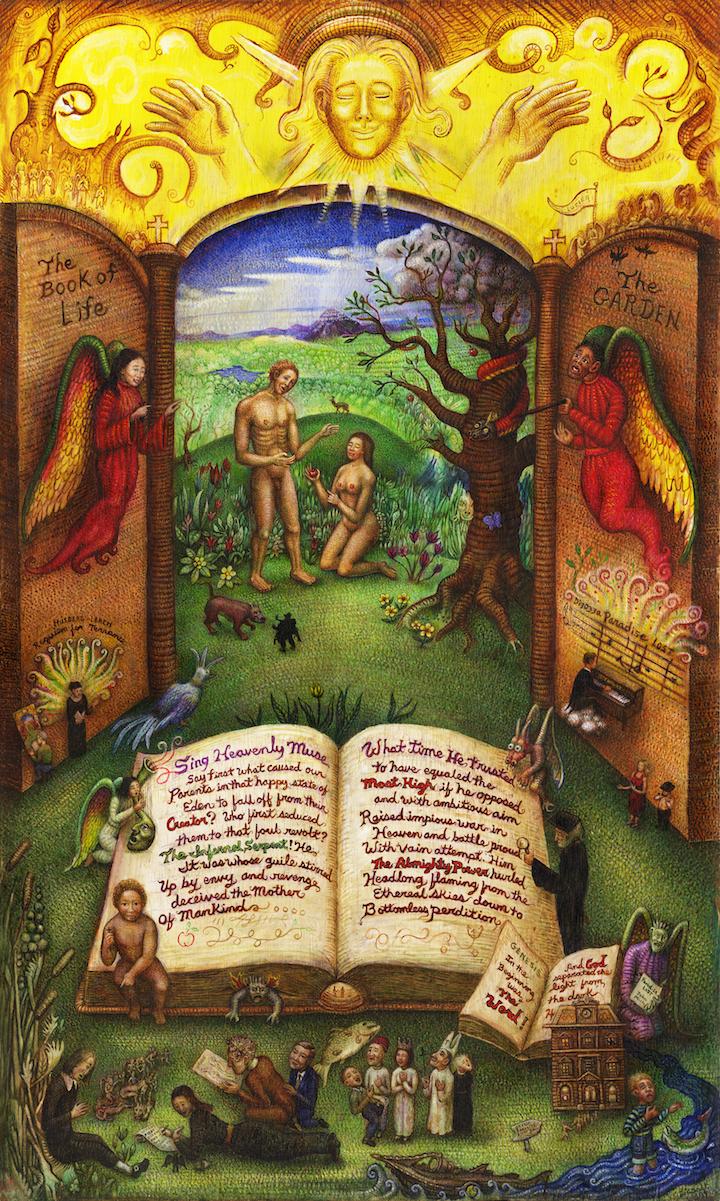 The
Book of
Life
The
GARDEN
Requiem for Terrance
Paradise Lost
Sing Heavenly Muse
Say first what caused our
Parents in that happy state of
Eden to fall off from their
Creator? Who first seduced
them to that foul revolt?
The Infernal Serpent! He,
It was whose guile stirred
Up by envy and revenge
deceived the Mother
Of Mankind
What time He trusted
to have equaled the
Most High if he opposed
and with ambitious aim
Raised impious war in
Heaven and battle proud
With Vain attempt. Him
The Almighty Power hurled
Headlong flaming from the
Ethereal Skies down to
Bottomless perdition
GENESIS
In the
Beginning
was
the
Word!
And God
separated the
light from
the dark